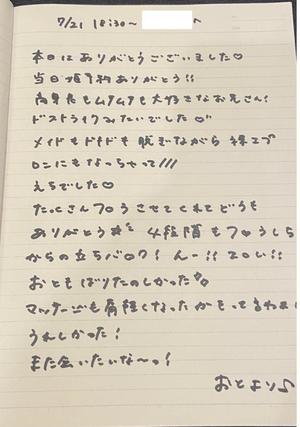 7/21 18:30〜 ♪
本日はありがとうございました♡
当日 予約ありがとう!!
高身長もムチムチも大好きなお兄さん!
ドストライクみたいでした
メイドもドキドキも脱ぎながら 裸エプ
ロンにもなっちゃって///
えちでした♡
たっくさん させてくれてどうも
ありがとう 4段階も うしろ
からの立ちバック! んー!! エロい!!
おともばりたのしかった
マッサージも肩軽くなった
うれしかった!
また会いたいな〜っ!
おとより♪